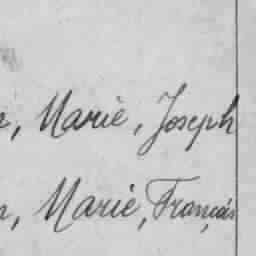 , Marie, Joseph
, Marie, François